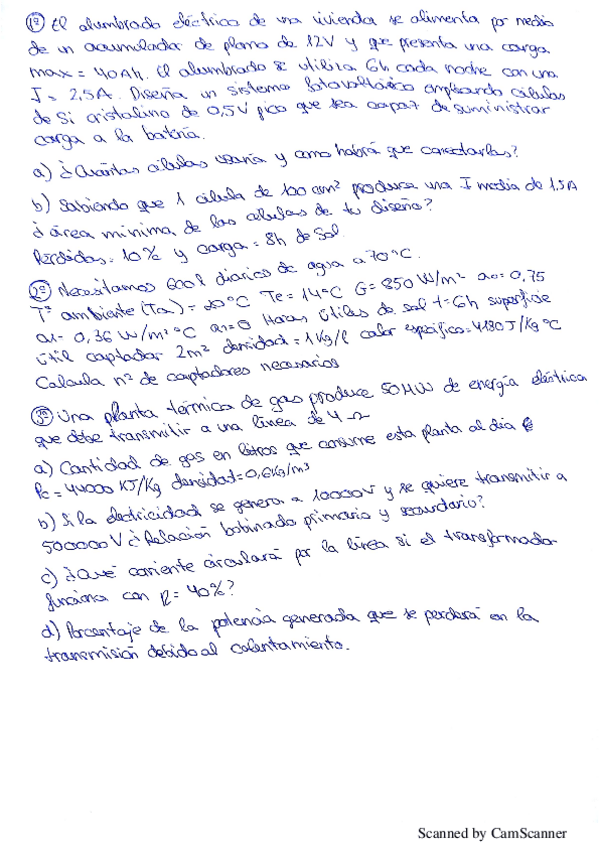 1º El alumbrado eléctrico de una vivienda se alimenta por medio
de un acumulador de plomo de 12V y que presenta una carga
max = 40Ah. El alumbrado se utiliza 6h cada noche con una
I = 2,5A. Diseña un sistema fotovoltaico empleando células
de Si cristalino de 0,5V pico que sea capaz de suministrar
carga a la batería.
a) ¿Cuántas células usaría y como habrá que conectarlas?
b) Sabiendo que 1 célula de 100cm² produce una I media de 1,5A
¿área mínima de las células de tu diseño?
Pérdidas = 10% y carga = 8h de Sol
2º Necesitamos 600l diarios de agua a 70°C.
Tª ambiente (Ta) = 20°C Te = 14°C G = 850 W/m² a0 = 0,75
a1 = 0,36 W/m²°C a2 = 0 Horas útiles de sol t = 6h superficie
útil captador 2m² densidad = 1Kg/l calor específico = 4180J/Kg°C
Calcula nº de captadores necesarios
3º Una planta térmica de gas produce 50MW de energía eléctrica
que debe transmitir a una línea de 4Ω
a) Cantidad de gas en litros que consume esta planta al día
Pc = 44000 KJ/Kg densidad = 0,6Kg/m³
b) Si la electricidad se genera a 10000V y se quiere transmitir a
500000V ¿Relación bobinado primario y secundario?
c) ¿Qué corriente circulará por la línea si el transformador
funciona con η = 40%?
d) Porcentaje de la potencia generada que se perderá en la
transmisión debido al calentamiento.
Scanned by CamScanner